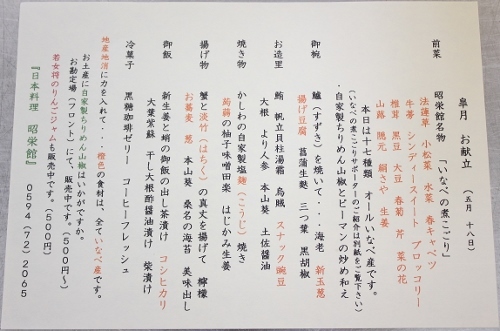 皐月 お献立 (五月 十八日)
前菜 昭栄館名物 「いなべの煮こごり」
法蓮草 小松菜 水菜 春キャベツ
牛蒡 シンディースイート ブロッコリー
椎茸 黒豆 大豆 春菊 芹 菜の花
山蕗 穏元 絹さや 生姜
本日は十七種類 オールいなべ産です。
(いなべの煮こごりサポーターのご紹介は別紙をご覧下さい)
・自家製ちりめん山椒とピーマンの炒め和え
御椀 鱸(すずき)を焼いて・・・海老 新玉葱
揚げ豆腐 菖蒲生麩 三つ葉 黒胡椒
お造里 鮪 帆立貝柱湯霜 烏賊 スナック豌豆
大根 より人参 本山葵 土佐醤油
焼き物 かしわの自家製塩麹(こうじ)焼き
蒟蒻の柚子味噌田楽 はじかみ生姜
揚げ物 蟹と淡竹(はちく)の真丈を揚げて 檸檬
お蕎麦 本山葵 桑名の海苔 美味出し
御飯 新生姜と蛸の御飯の出し茶漬け コシヒカリ
大葉紫蘇 干し大根酢醤油漬け 柴漬け
冷菓子 黒糖珈琲ゼリー コーヒーフレッシュ
地産地消に力を入れて・・・橙色の食材は、全ていなべ産です。
お土産に自家製ちりめん山椒はいかがですか。
お勘定場(フロント)にて、販売中です。(500円〜)
若女将のりんごジャムも販売中です。(500円)
『日本料理 昭栄館』 0594(72)2065